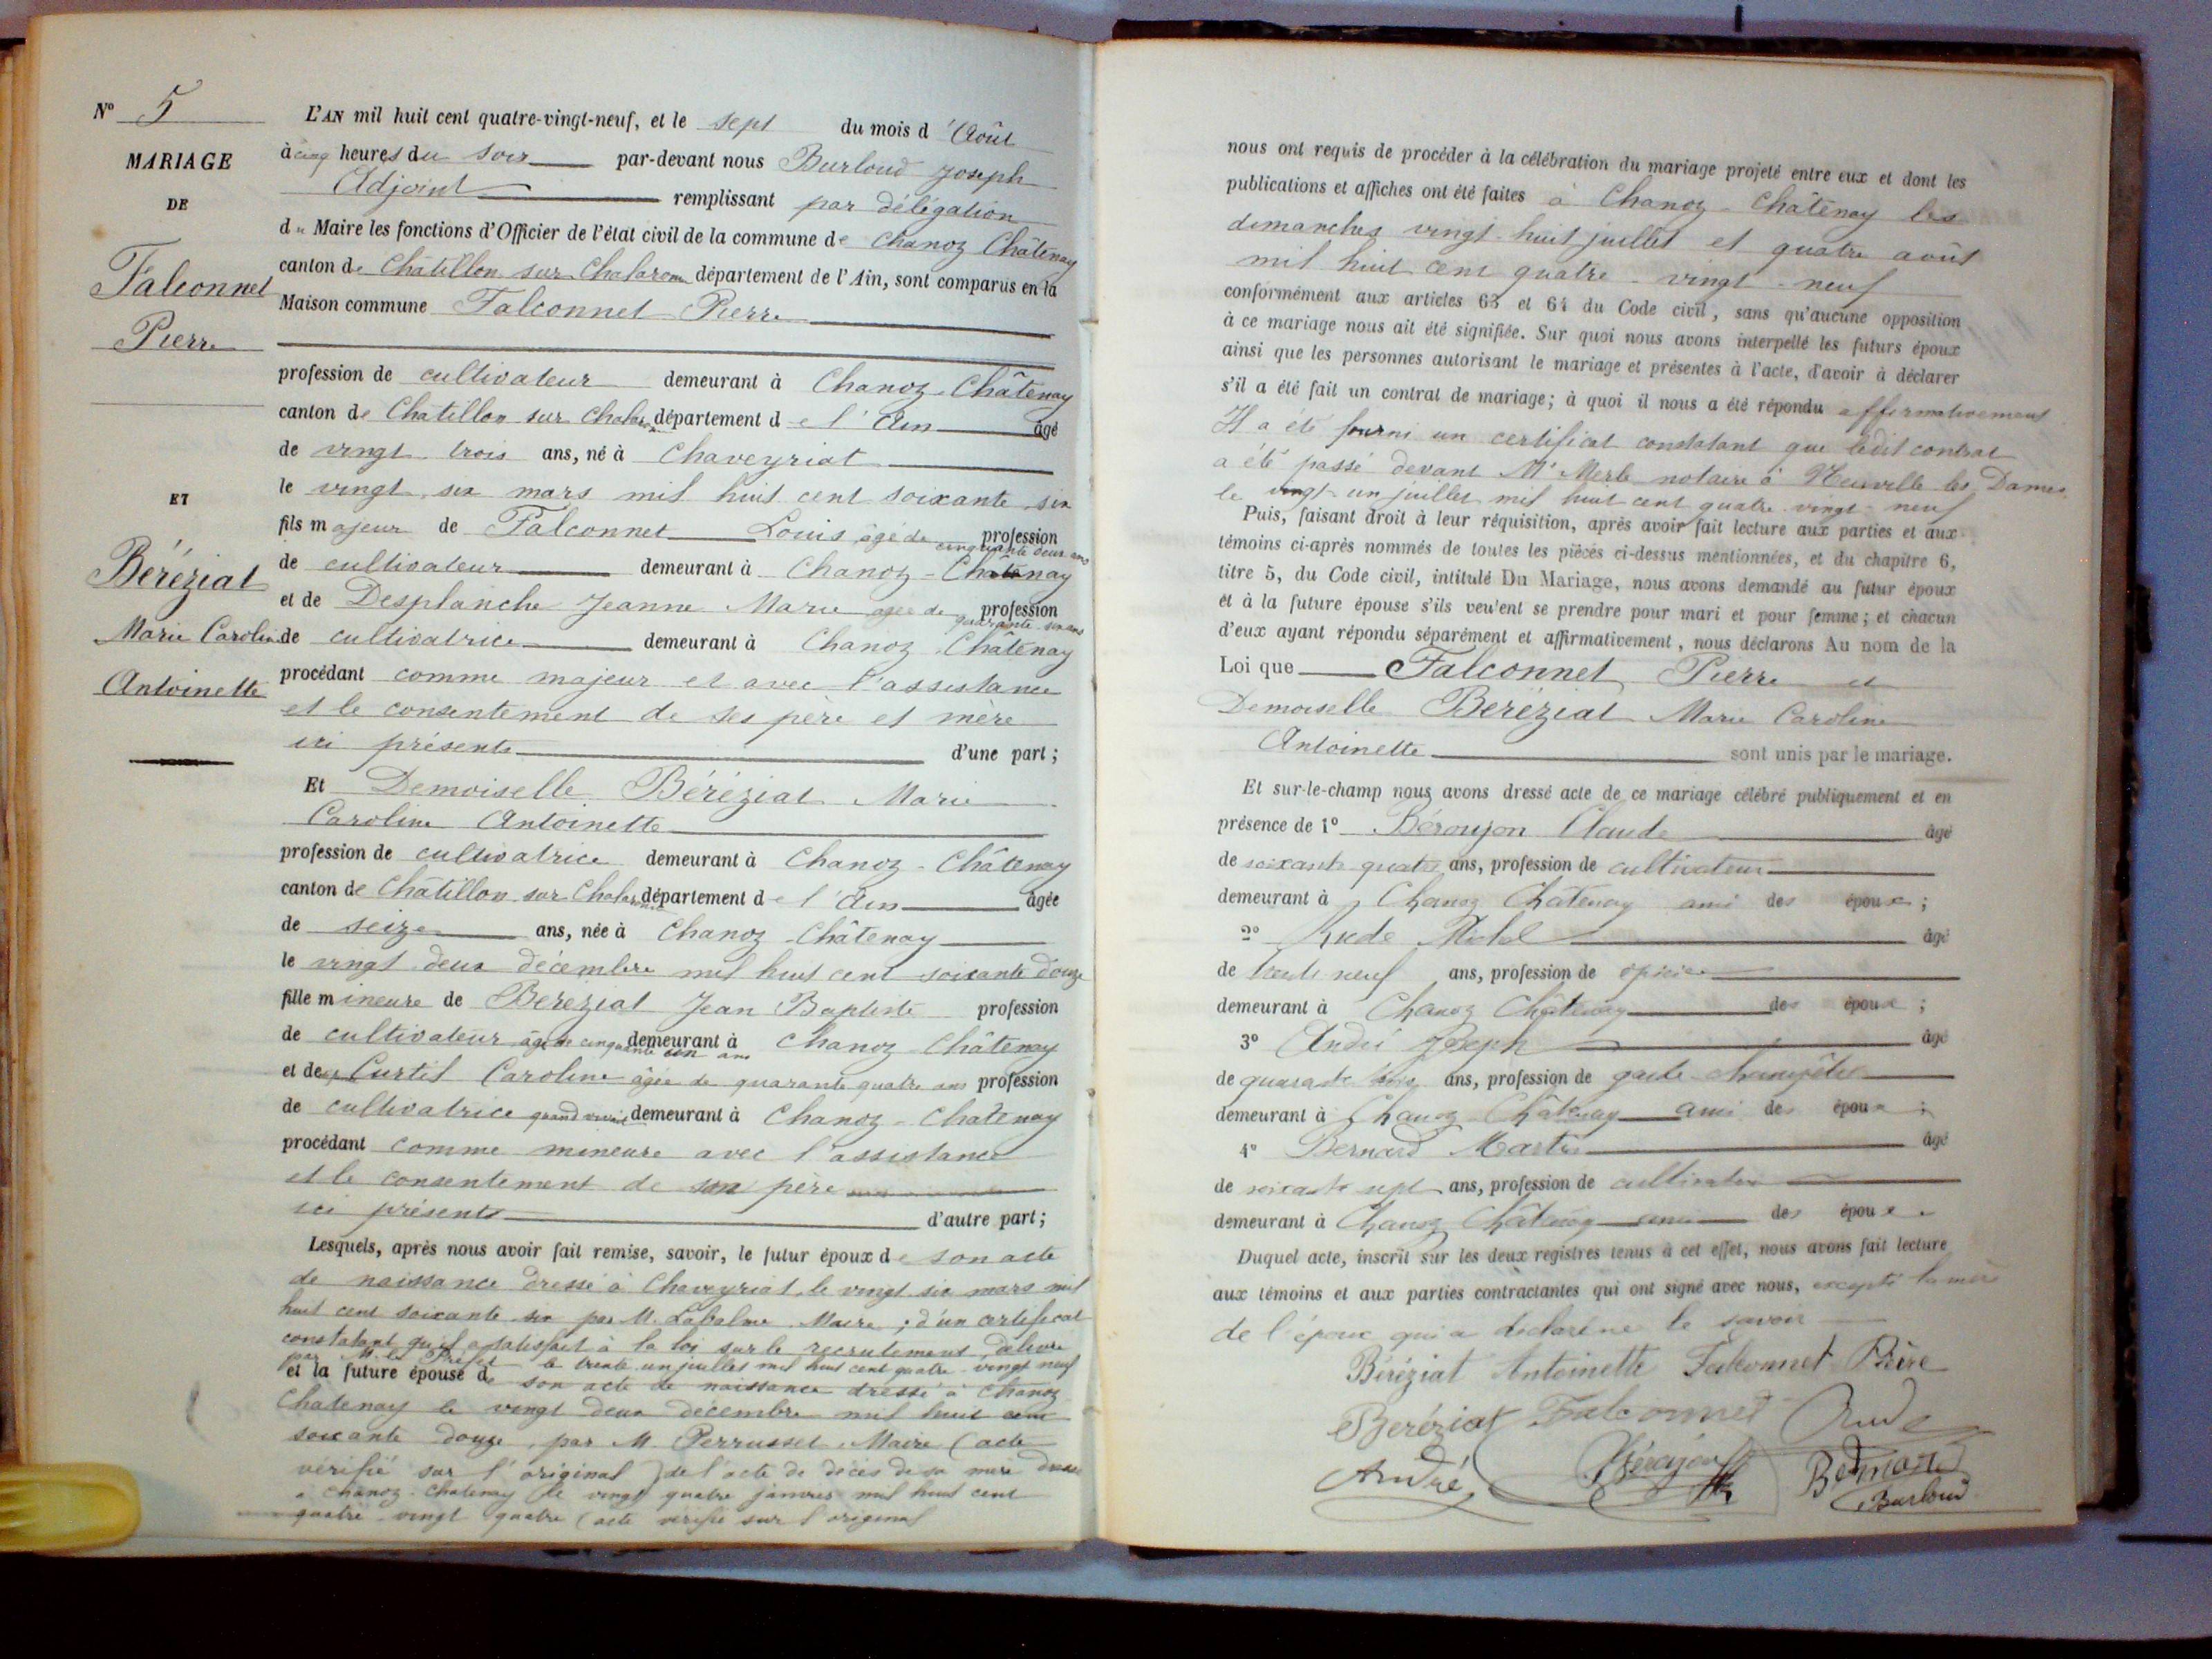 N° 5
MARIAGE
DE
Falconnet
Pierre
ET
Béréziat
Marie Caroline
Antoinette
L'AN mil huit cent quatre-vingt-neuf, et le sept du mois d'Août
à cinq heures du soir par-devant nous Burloud Joseph
Adjoint remplissant par délégation
du Maire les fonctions d'Officier de l'état civil de la commune de Chanoz Châtenay
canton de Châtillon sur Chalaronne département de l'Ain, sont comparus en la
Maison commune Falconnet Pierre
profession de cultivateur demeurant à Chanoz-Châtenay
canton de Châtillon sur Chalaronne département de l'Ain âgé
de vingt trois ans, né à Chaveyriat
le vingt six mars mil huit cent soixante six
fils majeur de Falconnet Louis âgé de cinquante deux ans profession
de cultivateur demeurant à Chanoz-Chatenay
et de Desplanche Jeanne Marie agée de quarante six ans profession
de cultivatrice demeurant à Chanoz Châtenay
procédant comme majeur et avec l'assistance
et le consentement de ses père et mère
ici présents d'une part;
Et Demoiselle Béréziat Marie
Caroline Antoinette
profession de cultivatrice demeurant à Chanoz-Châtenay
canton de Châtillon sur Chalaronne département de l'Ain âgée
de seize ans, née à Chanoz-Châtenay
le vingt deux décembre mil huit cent soixante douze
fille mineure de Béréziat Jean Baptiste profession
de cultivateur âgé de cinquante un ans demeurant à Chanoz Châtenay
et de Curtil Caroline âgée de quarante quatre ans profession
de cultivatrice quand vivait demeurant à Chanoz-Chatenay
procédant comme mineure avec l'assistance
et le consentement de son père
ici présents d'autre part;
Lesquels, après nous avoir fait remise, savoir, le futur époux de son acte
de naissance dressé à Chaveyriat le vingt six mars mil
huit cent soixante six par M. Labalme Maire; d'un certificat
constatant qu'il a satisfait à la loi sur le recrutement, délivré
par M. le Préfet le trente un juillet mil huit cent quatre-vingt neuf
et la future épouse de son acte de naissance dressé à Chanoz
Chatenay le vingt deux décembre mil huit cent
soixante douze, par M. Perrusset, Maire (acte
vérifié sur l'original) de l'acte de décès de sa mère dressé
à Chanoz-Chatenay le vingt quatre janvier mil huit cent
quatre-vingt quatre (acte vérifié sur l'original
nous ont requis de procéder à la célébration du mariage projeté entre eux et dont les
publications et affiches ont été faites à Chanoz-Châtenay les
dimanches vingt-huit juillet et quatre août
mil huit cent quatre-vingt-neuf
conformément aux articles 63 et 64 du Code civil, sans qu'aucune opposition
à ce mariage nous ait été signifiée. Sur quoi nous avons interpellé les futurs époux
ainsi que les personnes autorisant le mariage et présentes à l'acte, d'avoir à déclarer
s'il a été fait un contrat de mariage; à quoi il nous a été répondu affirmativement
Il a été fourni un certificat constatant que ledit contrat
a été passé devant Me Merle notaire à Neuville les Dames
le vingt-un juillet mil huit cent quatre-vingt-neuf
Puis, faisant droit à leur réquisition, après avoir fait lecture aux parties et aux
témoins ci-après nommés de toutes les pièces ci-dessus mentionnées, et du chapitre 6,
titre 5, du Code civil, intitulé Du Mariage, nous avons demandé au futur époux
et à la future épouse s'ils veulent se prendre pour mari et pour femme; et chacun
d'eux ayant répondu séparément et affirmativement, nous déclarons Au nom de la
Loi que Falconnet Pierre et
Demoiselle Béréziat Marie Caroline
Antoinette sont unis par le mariage.
Et sur-le-champ nous avons dressé acte de ce mariage célébré publiquement et en
présence de 1° Béroujon Claude âgé
de soixante quatre ans, profession de cultivateur
demeurant à Chanoz Châtenay ami des époux;
2° Rude Michel âgé
de trente neuf ans, profession de épicier
demeurant à Chanoz Châtenay des époux;
3° André Joseph âgé
de quarante trois ans, profession de garde-champêtre
demeurant à Chanoz Châtenay ami des époux;
4° Bernard Martin âgé
de soixante sept ans, profession de cultivateur
demeurant à Chanoz Châtenay ami des époux.
Duquel acte, inscrit sur les deux registres tenus à cet effet, nous avons fait lecture
aux témoins et aux parties contractantes qui ont signé avec nous, excepté la mère
de l'époux qui a déclaré ne le savoir
Béréziat Antoinette Falconnet Pierre
Béréziat Falconnet Rude
André Béroujon
Burloud